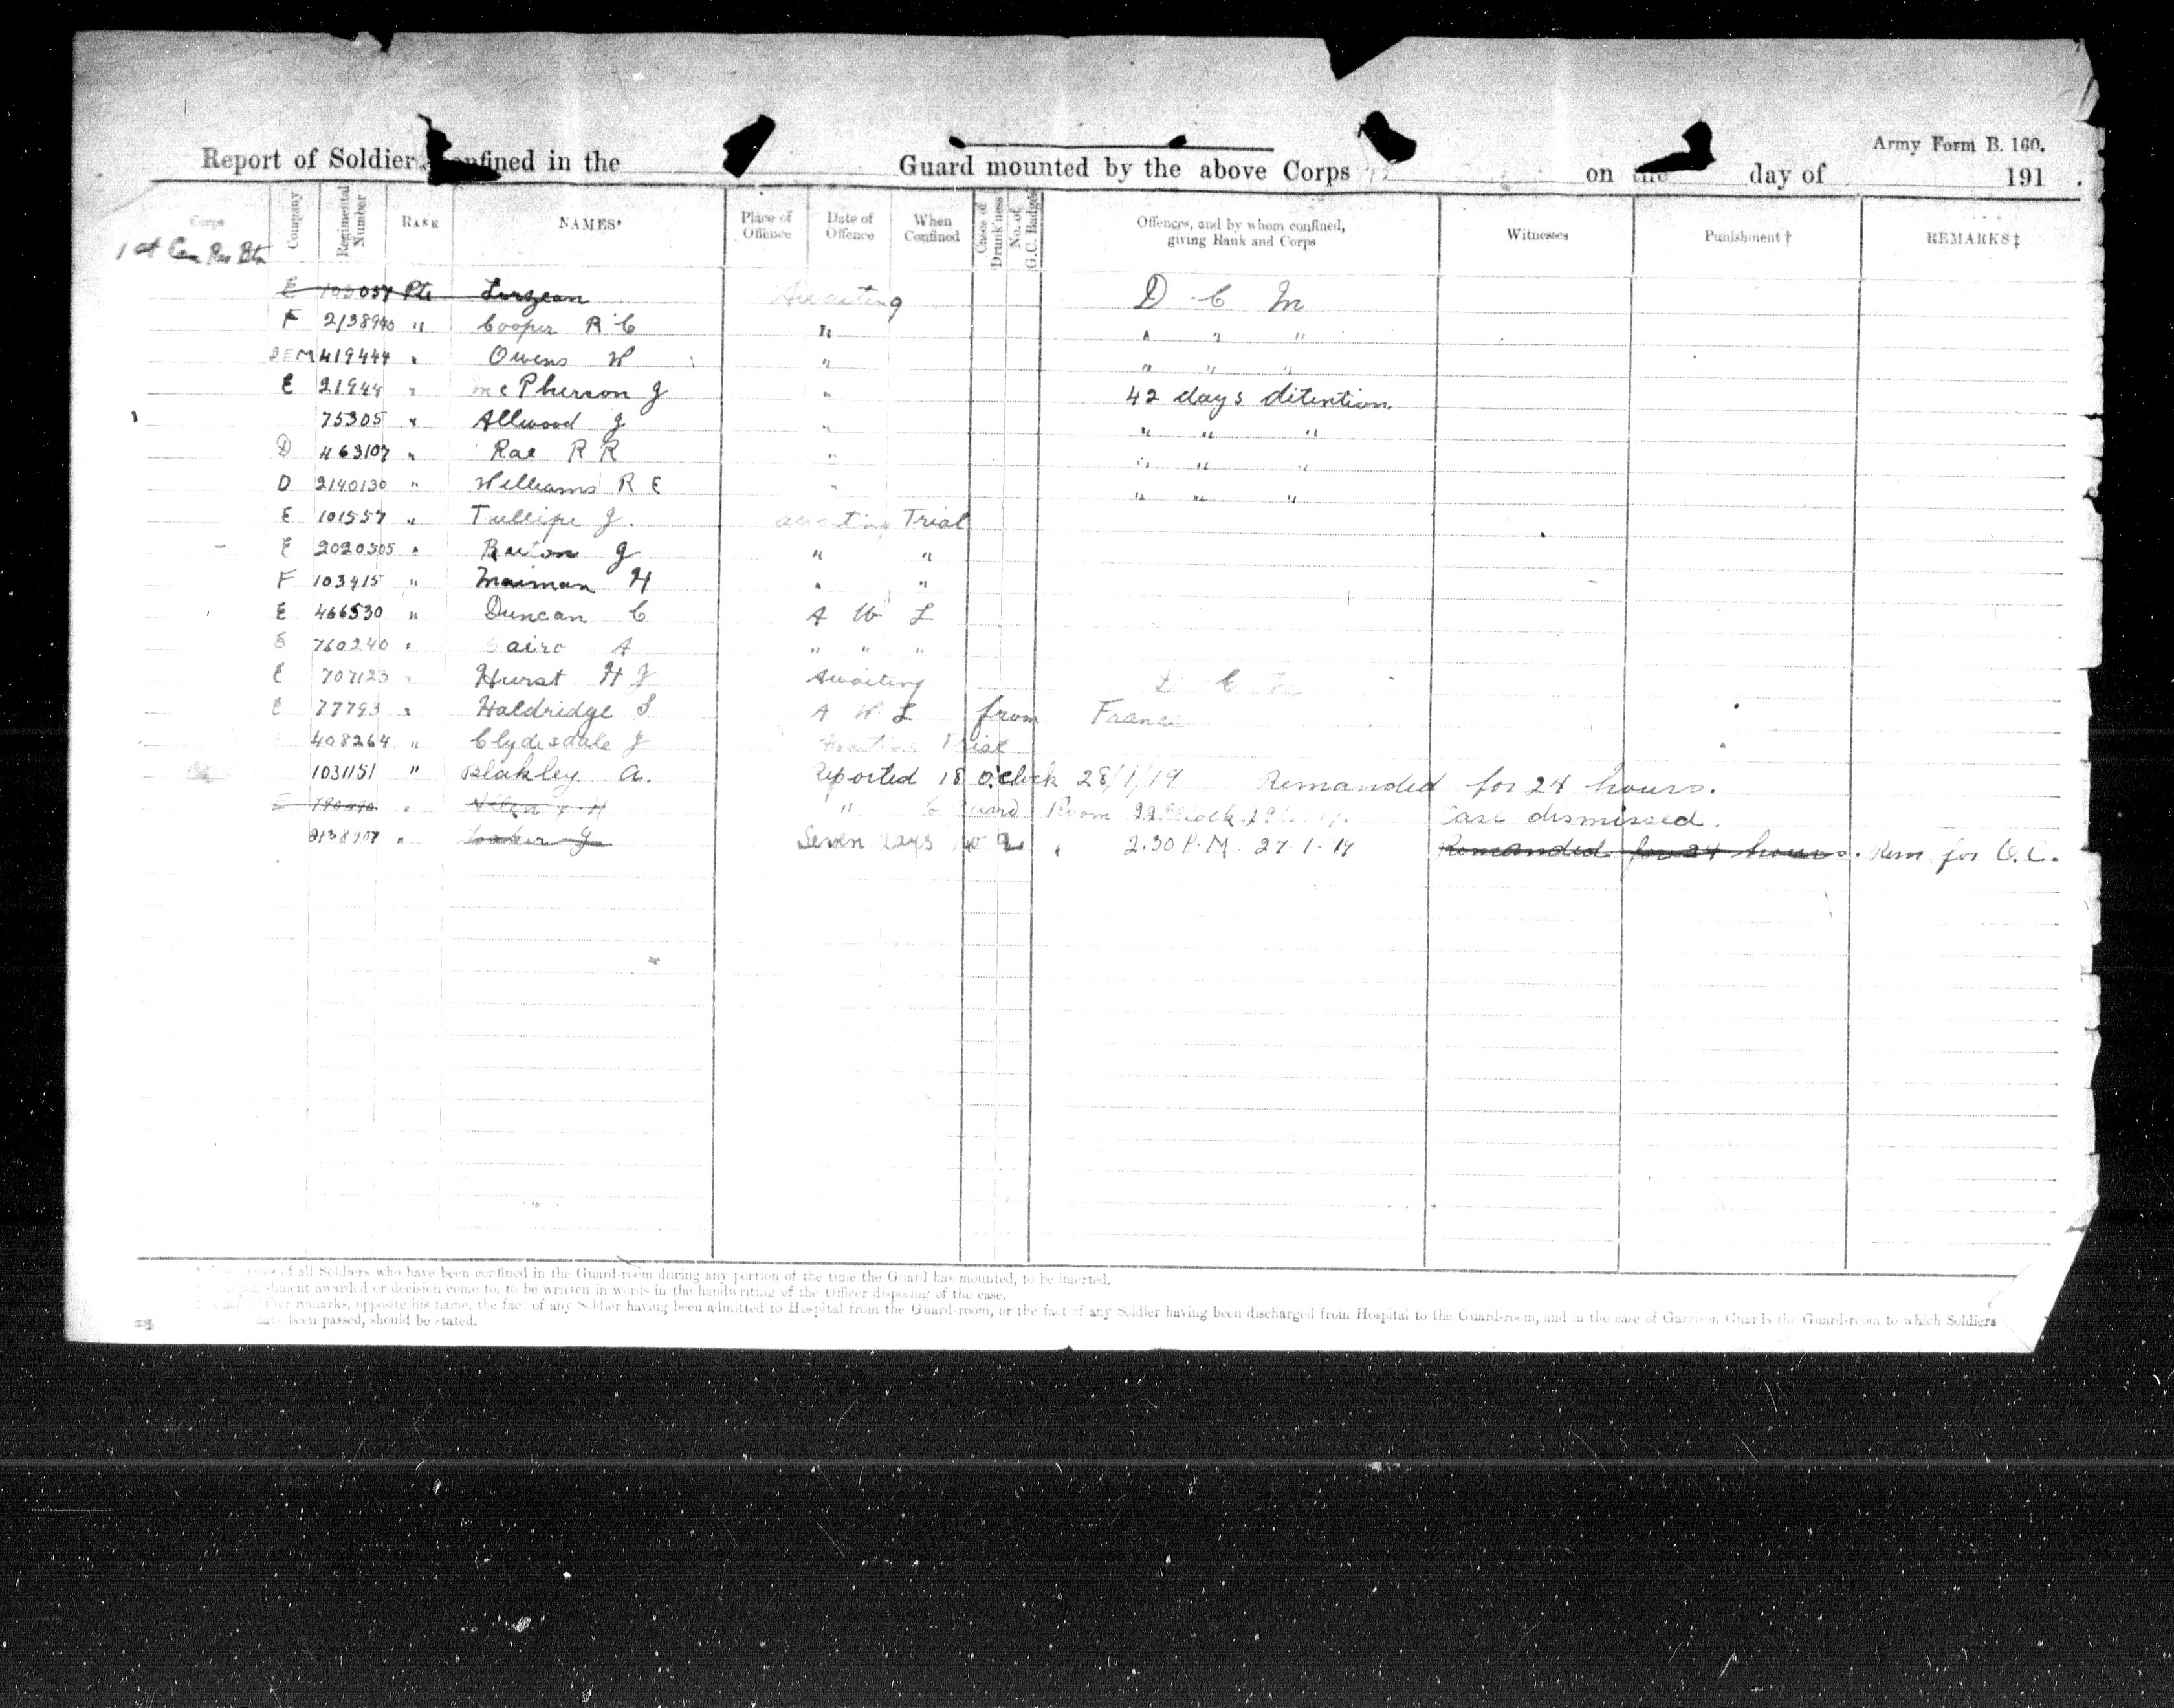 Army Form B. 160.
Report of Soldier confined in the Guard mounted by the above Corps on the day of 191 .
Corps Company Regimental Number RANK NAMES* Place of Offence Date of Offence When Confined Cases of Drunk'ness No. of G.C. Badges Offences, and by whom confined, giving Rank and Corps Witnesses Punishment † REMARKS ‡
1st Can Res Btn
E Pte Awaiting D C M
F 2138940 " Cooper R C " " " "
419444 " Owens W " " " "
E 21944 " McPherson J " 42 days ditention
75305 " Allwood J " " " "
D 463107 " Rae R R " " " "
D 2140130 " Williams R E " " " "
E 101557 " Tullipe J. awaiting Trial
E 2020305 " J " "
F 103415 " Maiman H " "
E 466530 " Duncan C A W L
E 760240 " A " " "
E 707123 " Hurst H J Awaiting D C M
E 77793 " Haldridge S A W L from France
408264 " Clydesdale J Awaiting Trial
1031151 " Blakley A. Reported 18 o'clock 28/1/19 Remanded for 24 hours.
" " to Guard Room 22 o'clock Case dismissed.
2138707 " Seven days " 2.30 P.M. 27-1-19 Remanded for 24 hours. Rem. for O.C.
of all Soldiers who have been confined in the Guard-room during any portion of the time the Guard has mounted, to be inserted.
punishment awarded or decision come to, to be written in words in the handwriting of the Officer disposing of the case.
remarks, opposite his name, the fact of any Soldier having been admitted to Hospital from the Guard-room, or the fact of any Soldier having been discharged from Hospital to the Guard-room, and in the case of Garrison Guards the Guard-room to which Soldiers
have been passed, should be stated.